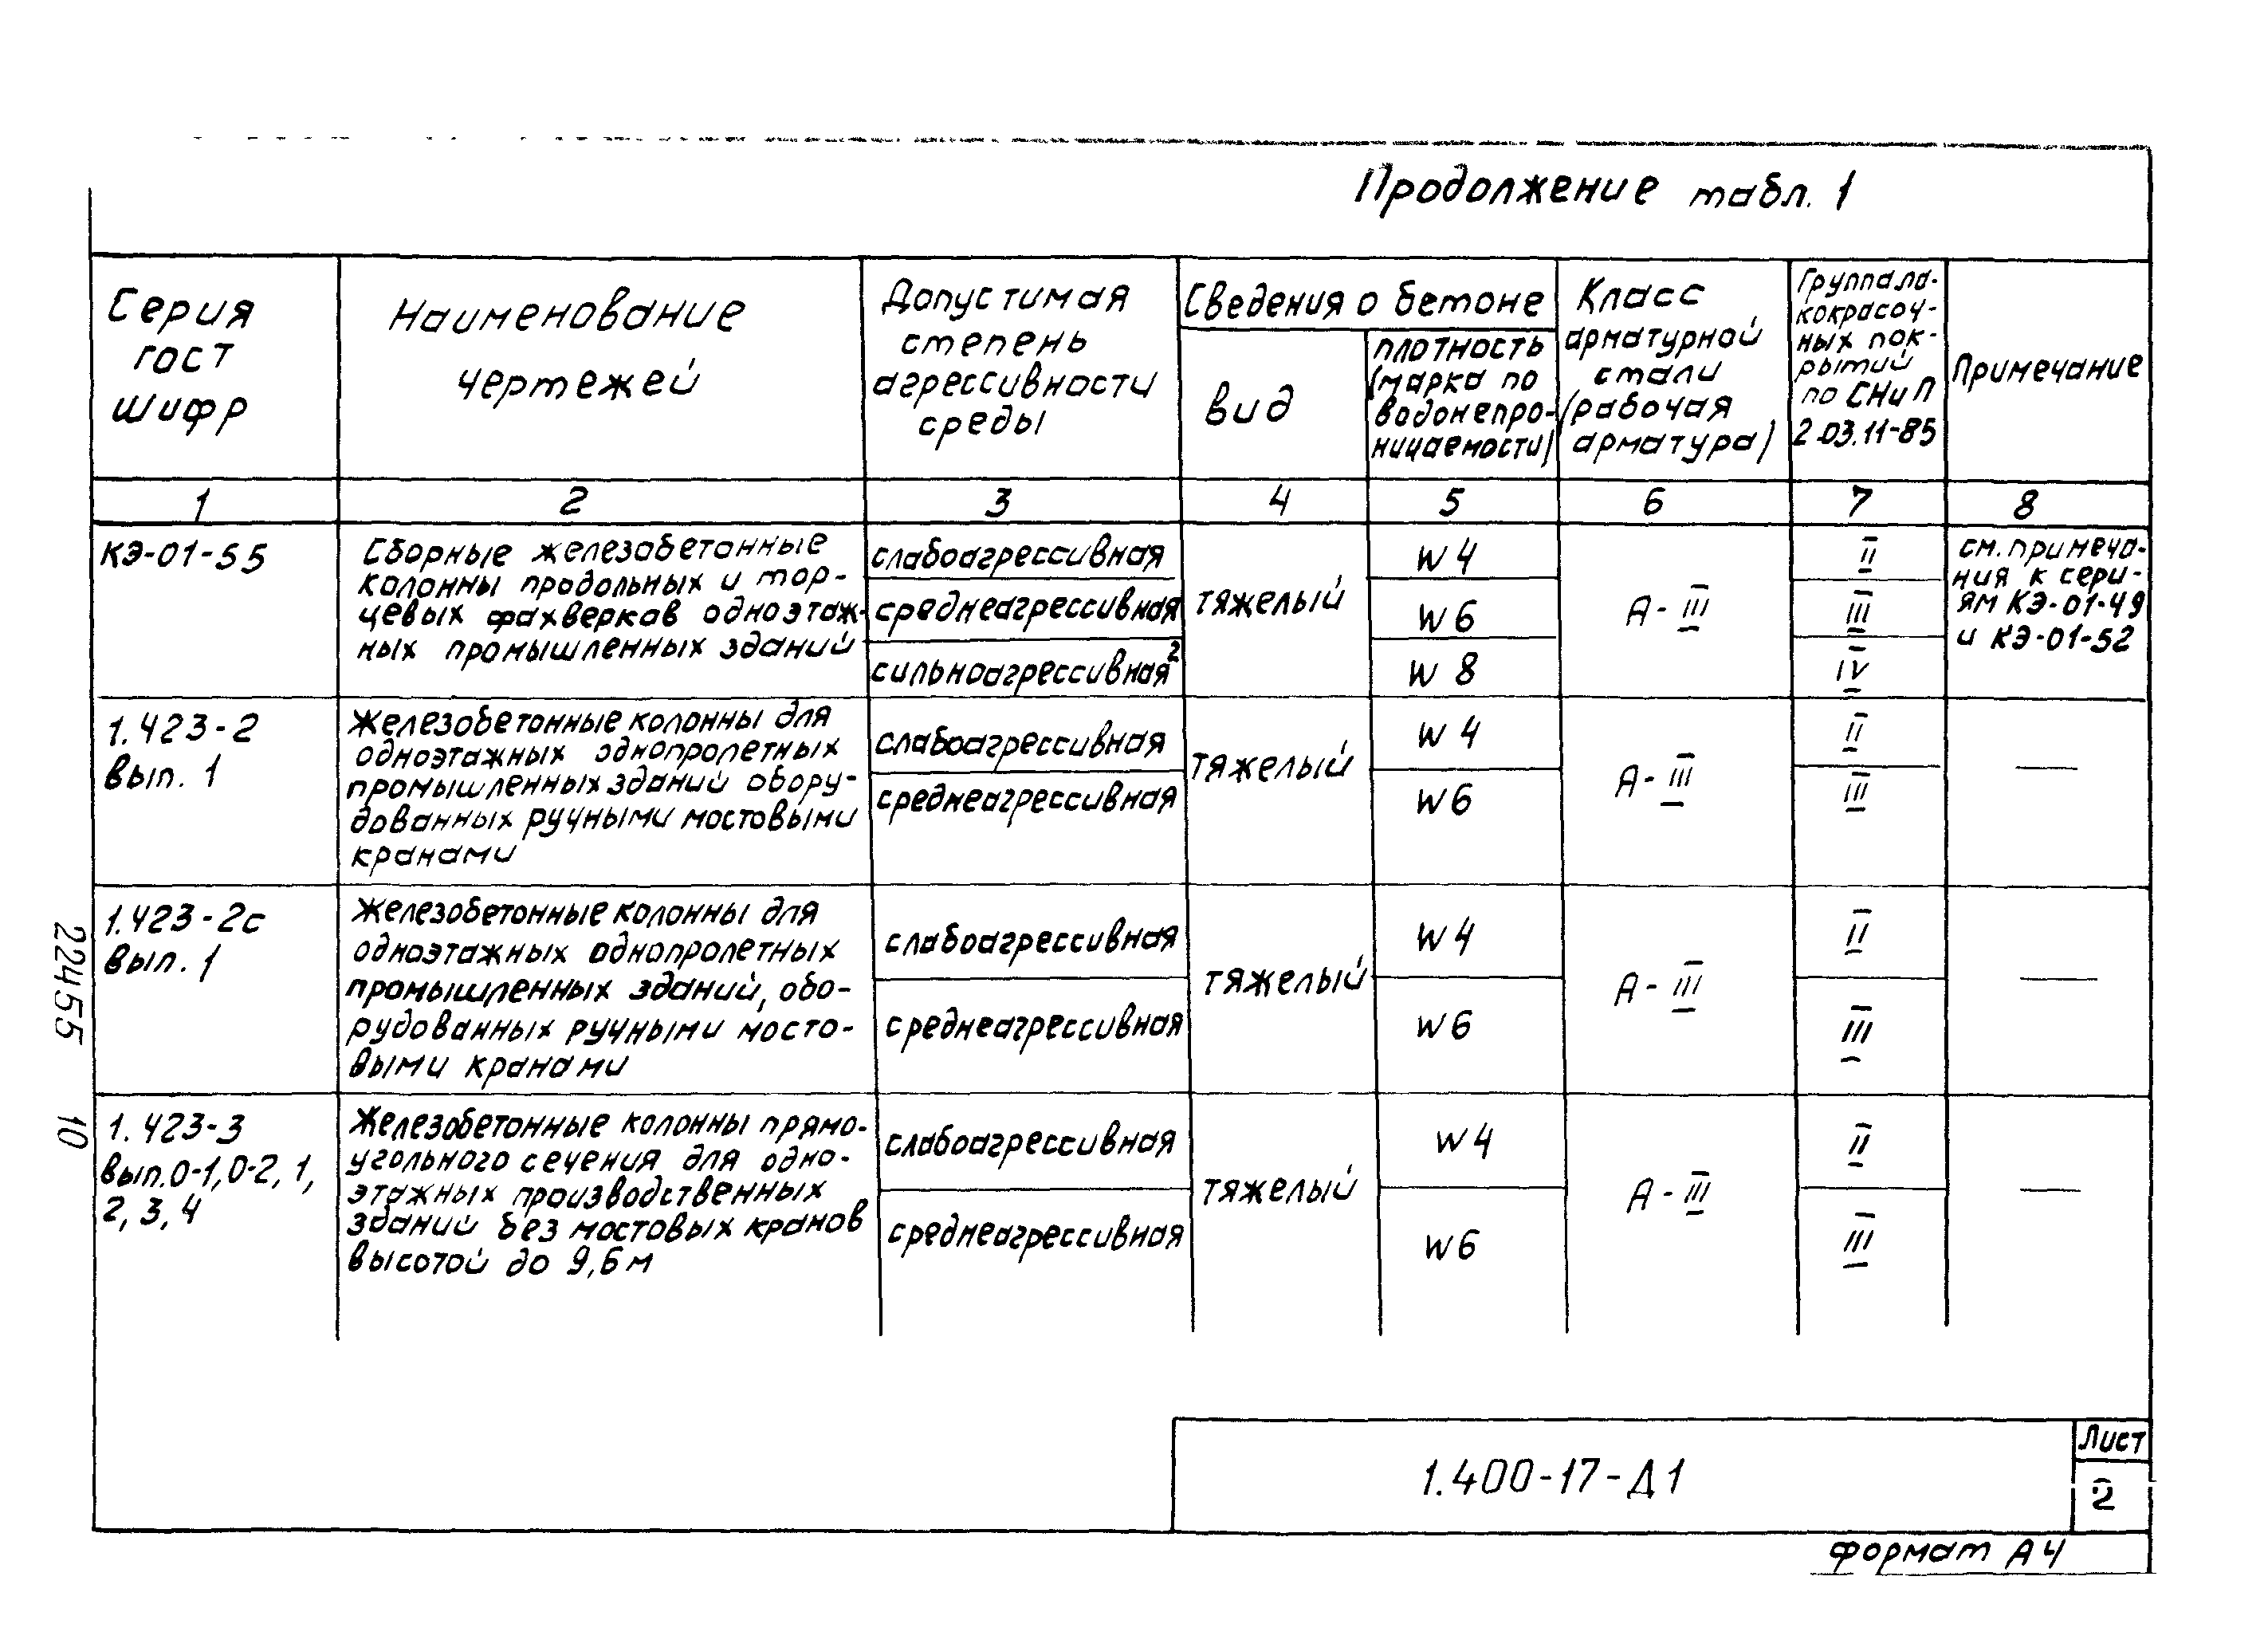 Продолжение табл. 1
Серия
гост
шифр
Наименование
чертежей
Допустимая
степень
агрессивности
среды
Сведения о бетоне
вид
плотность
(марка по
водонепро-
ницаемости)
Класс
арматурной
стали
(рабочая
арматура)
Группа ла-
кокрасоч-
ных пок-
рытий
по СНиП
2.03.11-85
Примечание
1
2
3
4
5
6
7
8
КЭ-01-55
Сборные железобетонные
колонны продольных и тор-
цевых фахверков одноэтаж-
ных промышленных зданий
слабоагрессивная
среднеагрессивная
сильноагрессивная²
тяжелый
W4
W6
W 8
А-III
II
III
IV
см. примеча-
ния к сери-
ям КЭ-01-49
и КЭ-01-52
1.423-2
вып. 1
Железобетонные колонны для
одноэтажных однопролетных
промышленных зданий обору-
дованных ручными мостовыми
кранами
слабоагрессивная
среднеагрессивная
тяжелый
W4
W6
А-III
II
III
—
1.423-2с
вып. 1
Железобетонные колонны для
одноэтажных однопролетных
промышленных зданий, обо-
рудованных ручными мосто-
выми кранами
слабоагрессивная
среднеагрессивная
тяжелый
W4
W6
А-III
II
III
—
1.423-3
вып.0-1,0-2, 1,
2, 3, 4
Железобетонные колонны прямо-
угольного сечения для одно-
этажных производственных
зданий без мостовых кранов
высотой до 9,6м
слабоагрессивная
среднеагрессивная
тяжелый
W4
W6
А-III
II
III
—
22455 10
1.400-17-Д1
Лист
2
формат А4